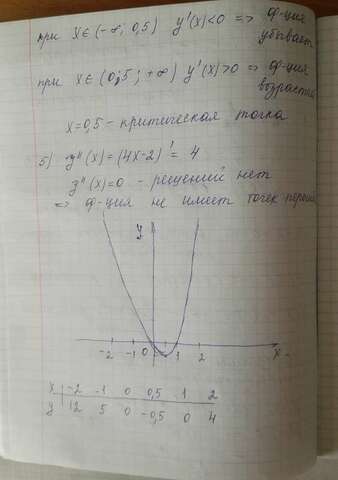 при x∈(-∞; 0,5) y'(x)<0 => ф-ция
убывает
при x∈(0,5; +∞) y'(x)>0 => ф-ция
x=0,5 - критическая точка
5) y''(x)=(4x-2)'= 4
y''(x)=0 - решений нет
=> ф-ция не имеет точек
y
-2 -1 0 1 2 x
x -2 -1 0 0,5 1 2
y 12 5 0 -0,5 0 4